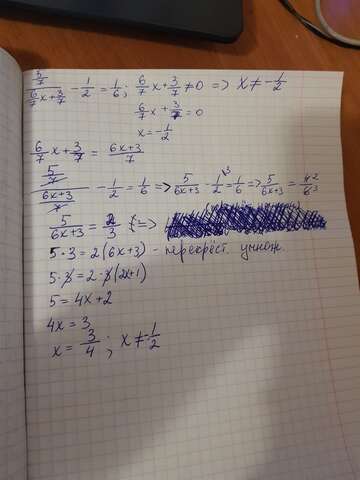 3/7 / (6/7x+3/7) - 1/2 = 1/6; 6/7x+3/7≠0 => x≠-1/2
6/7x+3/7=0
x=-1/2
6/7x+3/7 = (6x+3)/7
5/7 / ((6x+3)/7) - 1/2 = 1/6 => 5/(6x+3) - 1/2 = 1/6 => 5/(6x+3) = 4/6
5/(6x+3) = 2/3 <=>
5·3=2(6x+3) - перекрёст. умнож.
5·3=2·3(2x+1)
5=4x+2
4x=3
x=3/4; x≠-1/2